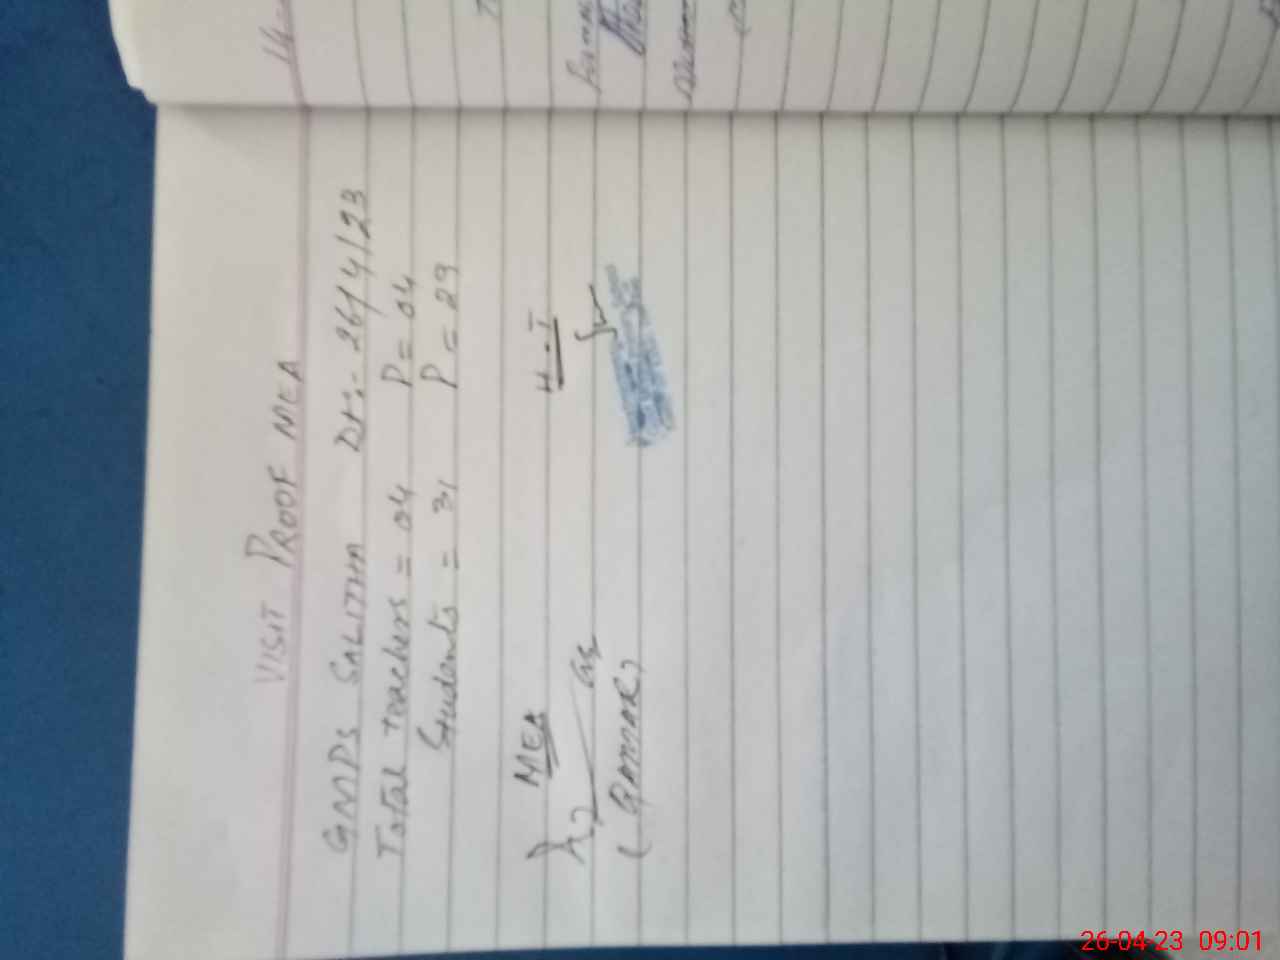 VISIT PROOF MEA
GMPS SALITHA Dt:- 26/4/23
Total teachers = 04 P = 04
Students = 31 P = 29
MEA H-T
(QAMAR)
26-04-23 09:01